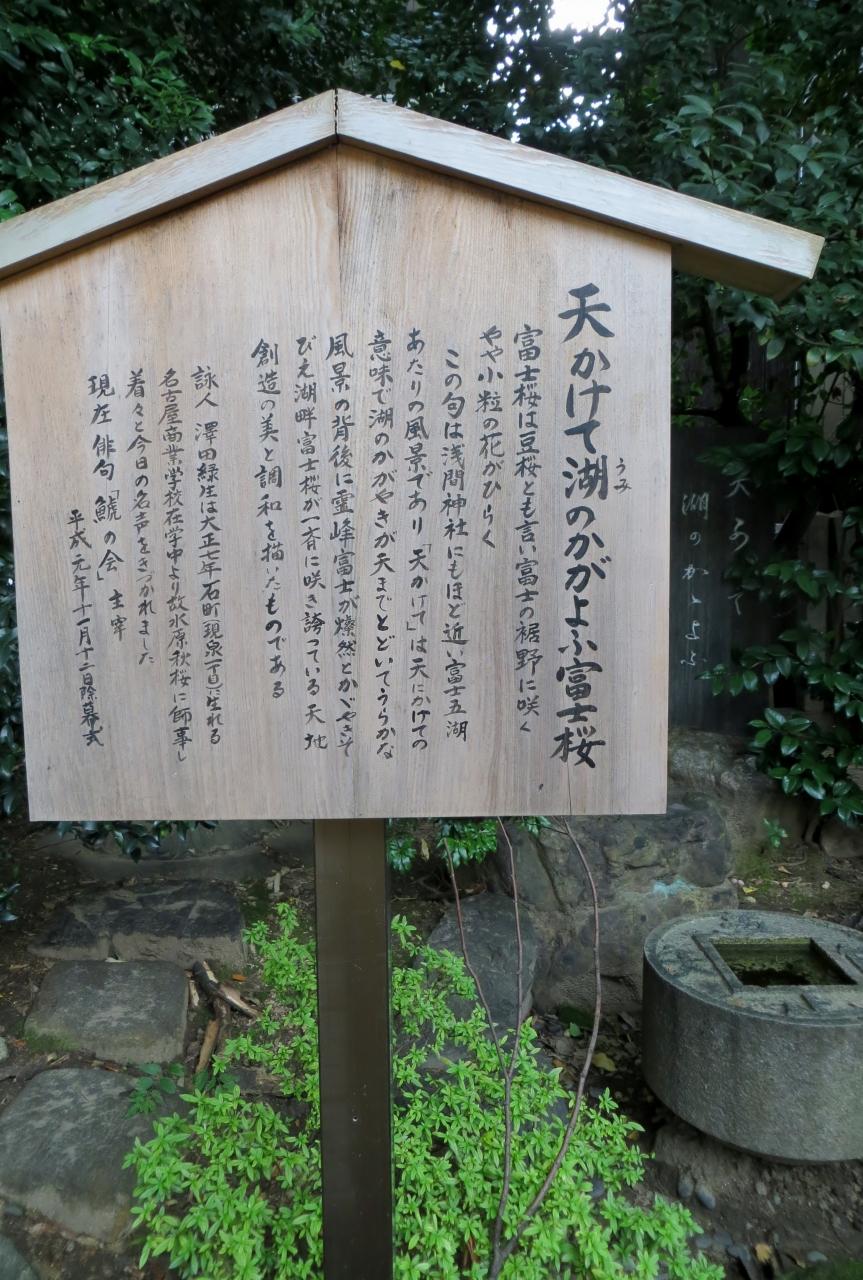 天かけて湖のかがよふ富士桜
うみ
富士桜は豆桜とも言い富士の裾野に咲く
やや小粒の花がひらく
この句は浅間神社にもほど近い富士五湖
あたりの風景であり「天かけて」は天にかけての
意味で湖のかがやきが天までとどいてうらかな
風景の背後に霊峰富士が燦然とかゞやきそ
びえ湖畔富士桜が一斉に咲き誇っている天地
創造の美と調和を描いたものである
詠人 澤田緑生は大正七年石町(現泉一丁目)に生れる
名古屋商業学校在学中より故水原秋桜に師事し
着々と今日の名声をきづかれました
現在 俳句「鯱の会」主宰
平成元年十一月十二日除幕式
天かけて
湖のかゞよふ